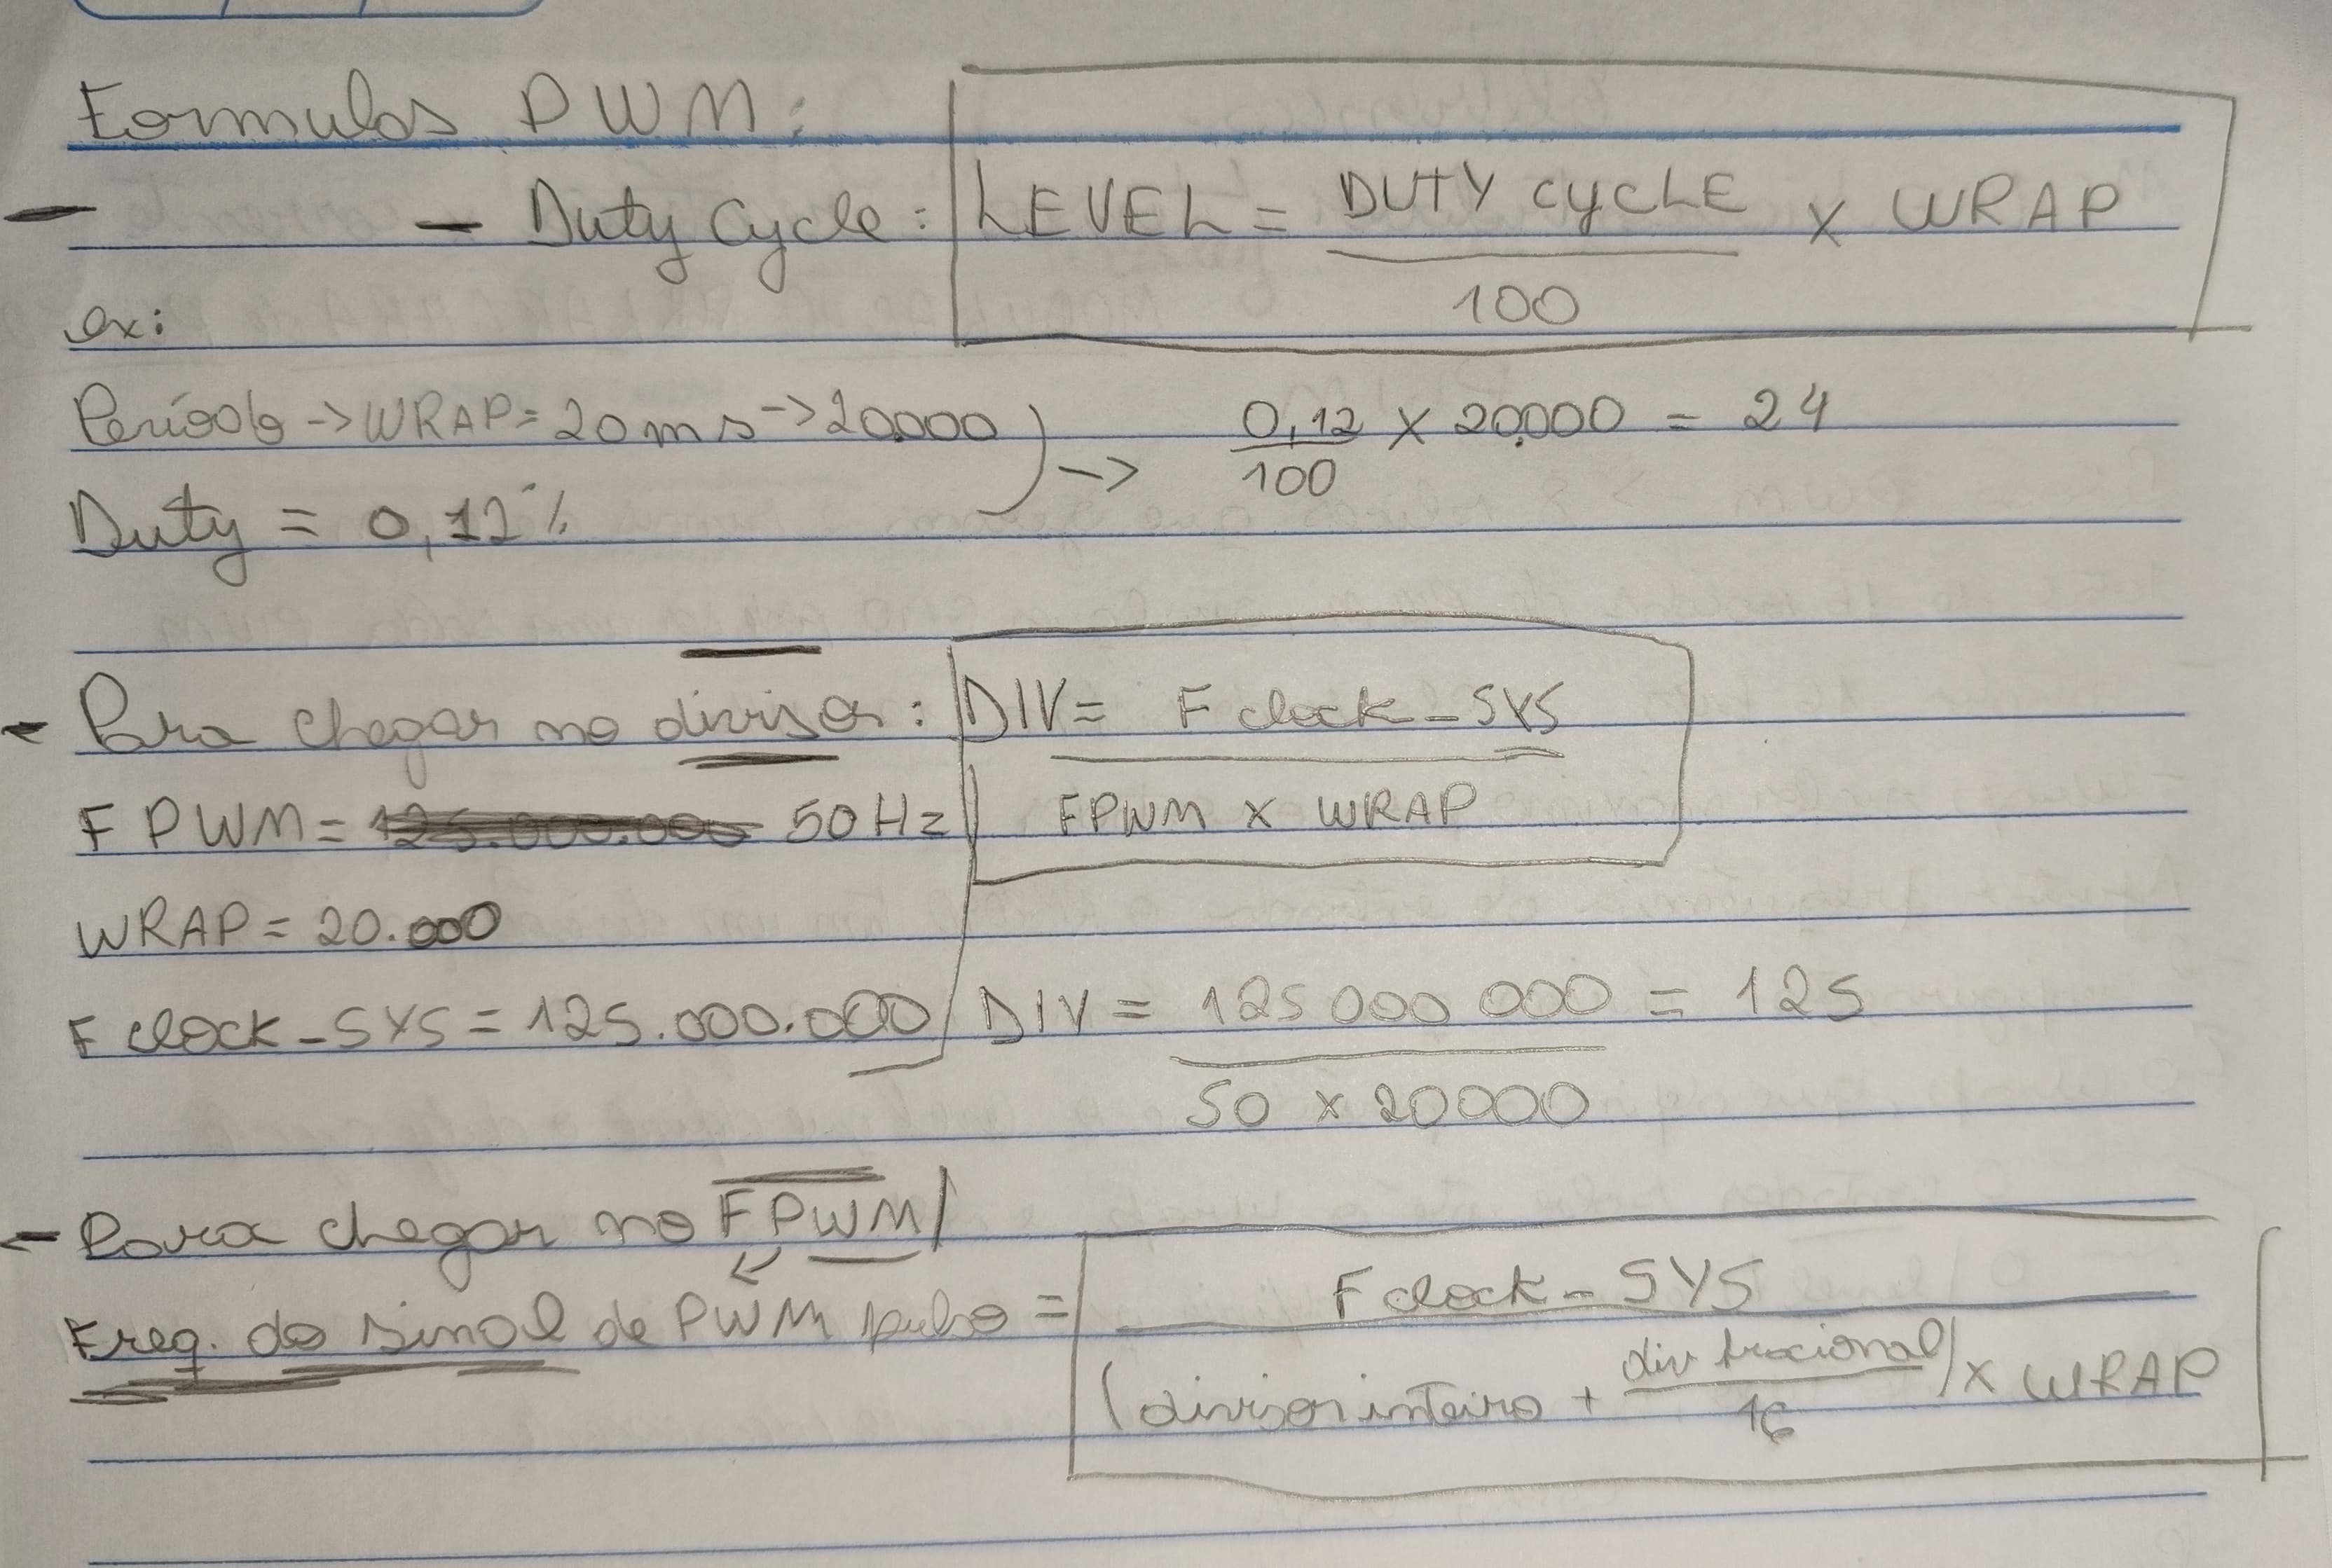 Formulas PWM:
- - Duty Cycle: LEVEL = DUTY CYCLE / 100 x WRAP
ex:
Período -> WRAP = 20ms -> 20.000
Duty = 0,12%
-> 0,12 / 100 x 20.000 = 24
- Para chegar no divisor: DIV = F clock_SYS / FPWM x WRAP
F PWM = 125.000.000 50 Hz
WRAP = 20.000
F clock_SYS = 125.000.000
DIV = 125 000 000 / 50 x 20000 = 125
- Para chegar no FPWM /
Freq. do sinal de PWM pulso = F clock_SYS / (divisor inteiro + div fracional / 16) x WRAP